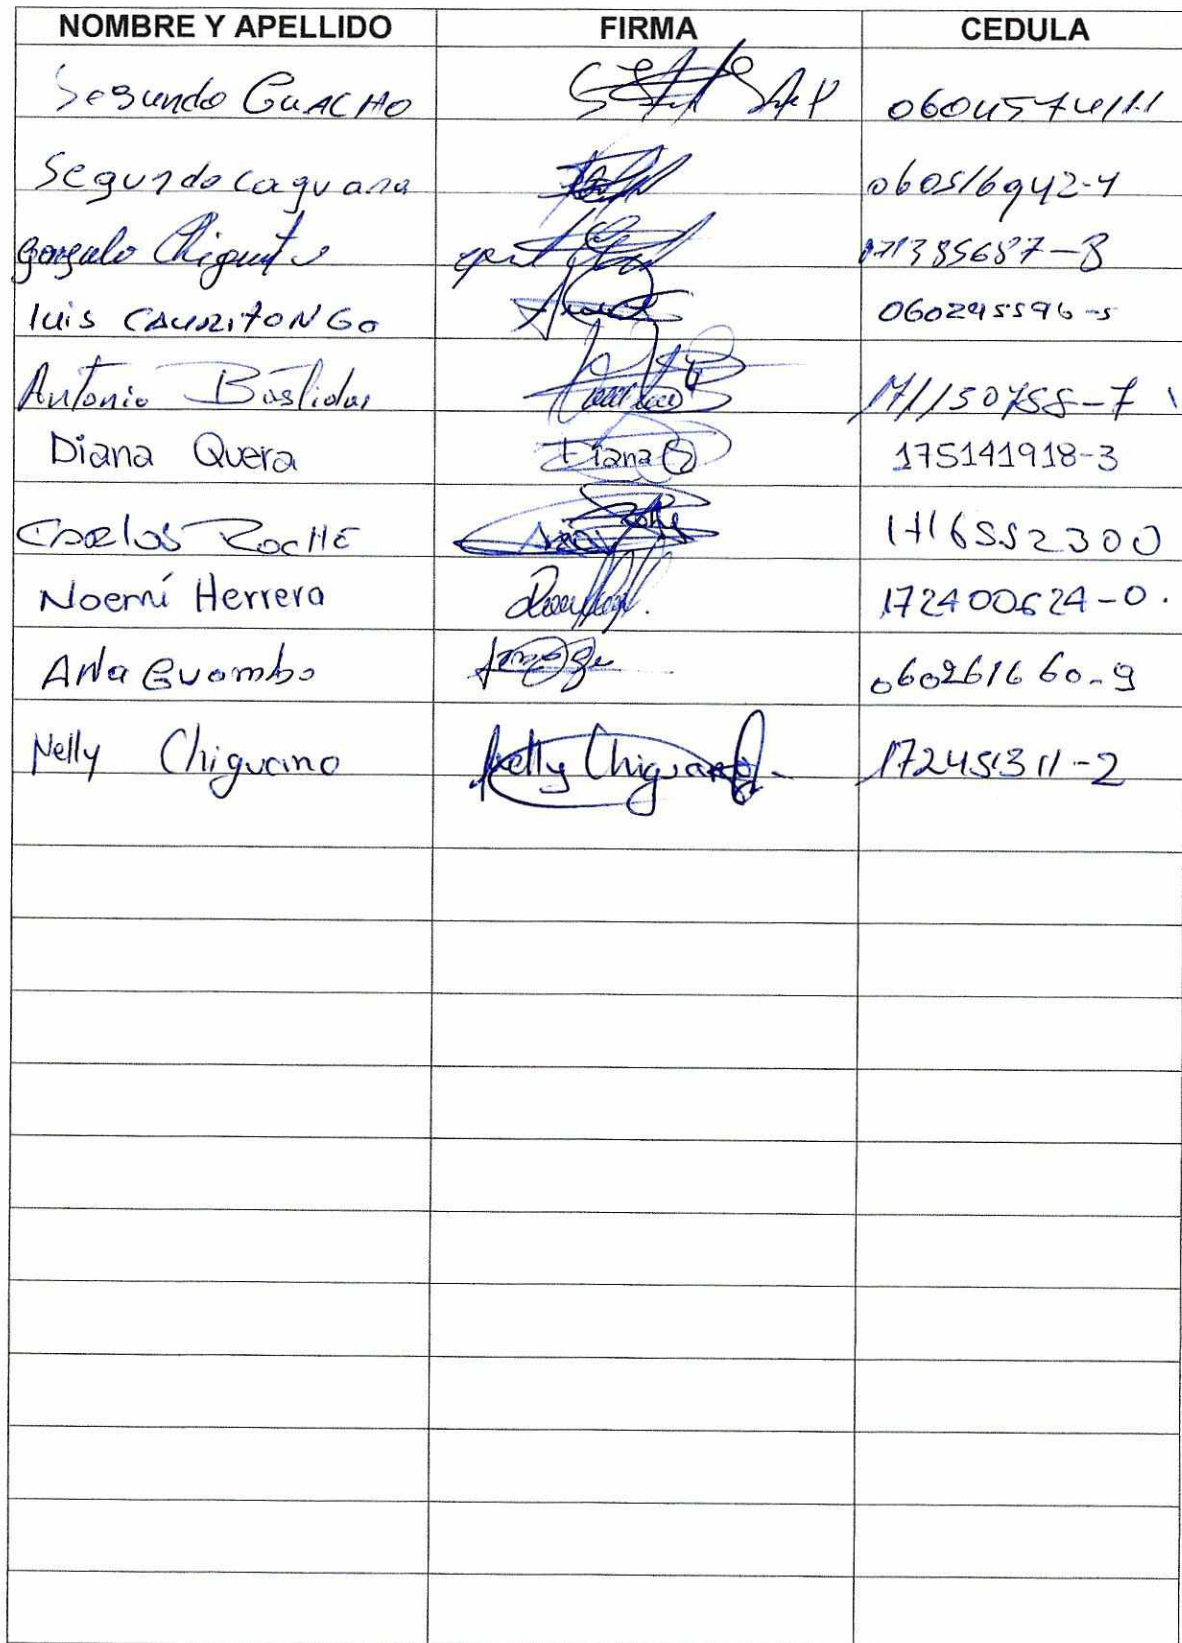 NOMBRE Y APELLIDO FIRMA CEDULA
Segundo GuACHO
Segundo caguana 060516942-4
gonzalo 171385687-8
luis CAURITONGO 060295596-5
Antonio Bastidas 171150758-7
Diana Quera Diana Q 175141918-3
Carlos RocHE 1716552300
Noemí Herrera 172400624-0.
Ana Guambo 060261660-9
Nelly Chiguano Nelly Chiguano 172451311-2